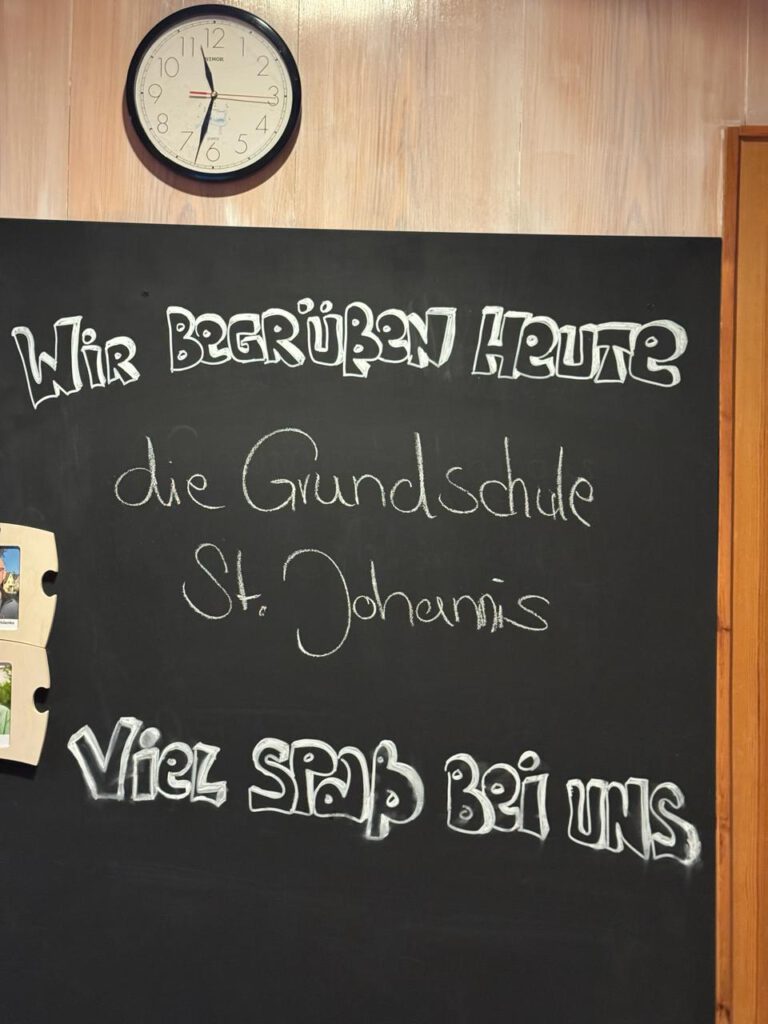 12
11
10
2
9
3
8
4
7
5
6
Wir BEGRÜßEN HEUTE
die Grundschule
St. Johannis
Viel Spaß Bei uns